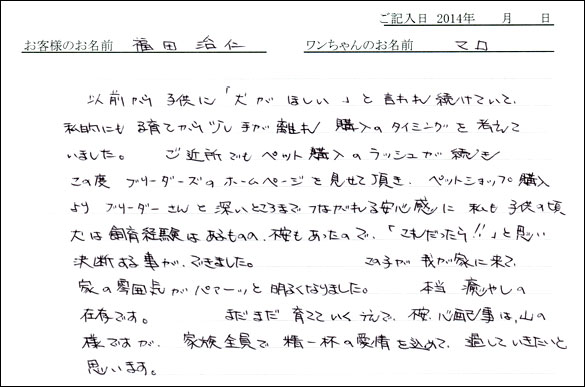 ご記入日 2014年 月 日
お客様のお名前 福田 治仁 ワンちゃんのお名前 マロ
以前から子供に「犬がほしい」と言われ続けていて、
私的にも子育てから少し手が離れ 購入のタイミングを考えて
いました。 ご近所でもペット購入のラッシュが続き
この度 ブリーダーズのホームページを見せて頂き、ペットショップ購入
より ブリーダーさんと深いところまでつながれる安心感に 私も子供の頃
犬は飼育経験はあるものの、 もあったので、「これだったら!!」と思い
決断する事が、できました。 この子が我が家に来て、
家の雰囲気がパァーッと明るくなりました。 本当 癒やしの
存在です。 まだまだ 育てていくうえで、 心配事は、山の
様ですが、 家族全員で 精一杯の愛情を込めて、過していきたいと
思います。